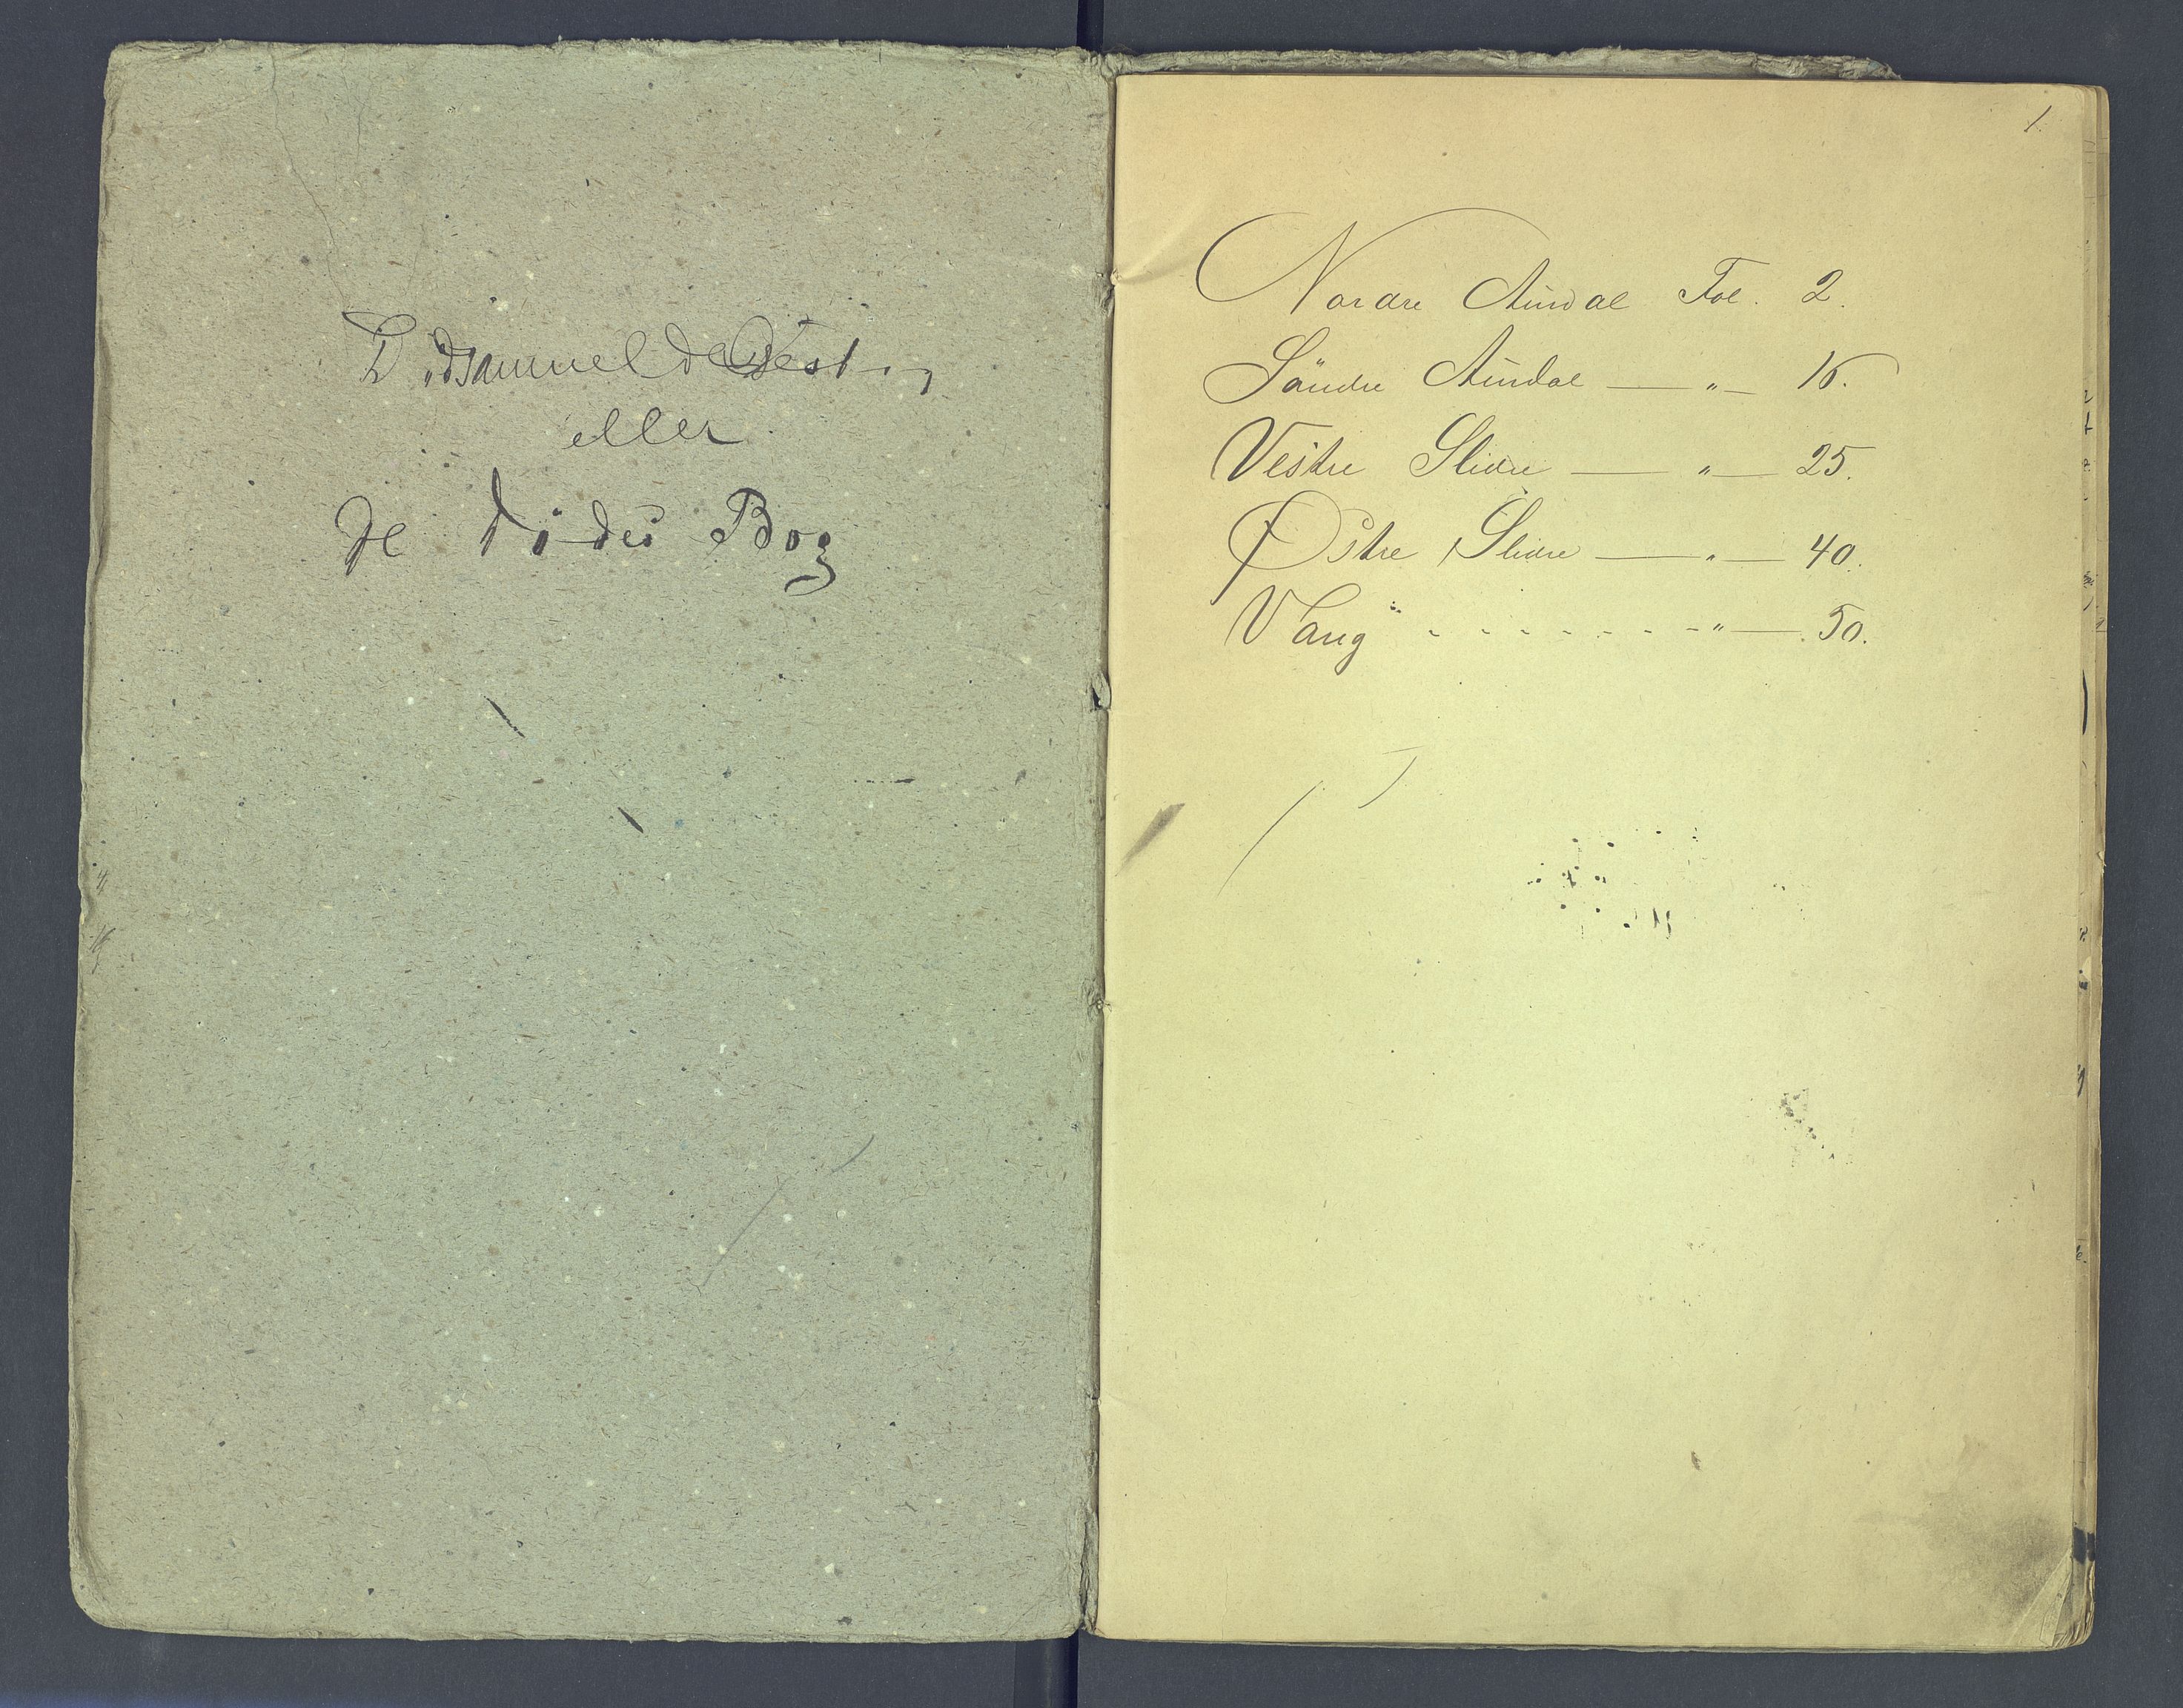 eller
De Dødes Bog
1.
Nordre Aurdal Fol. 2.
Söndre Aurdal — " — 16.
Vestre Slidre — " — 25.
Østre Slidre — " — 40.
Vang - - - - - - - " — 50.